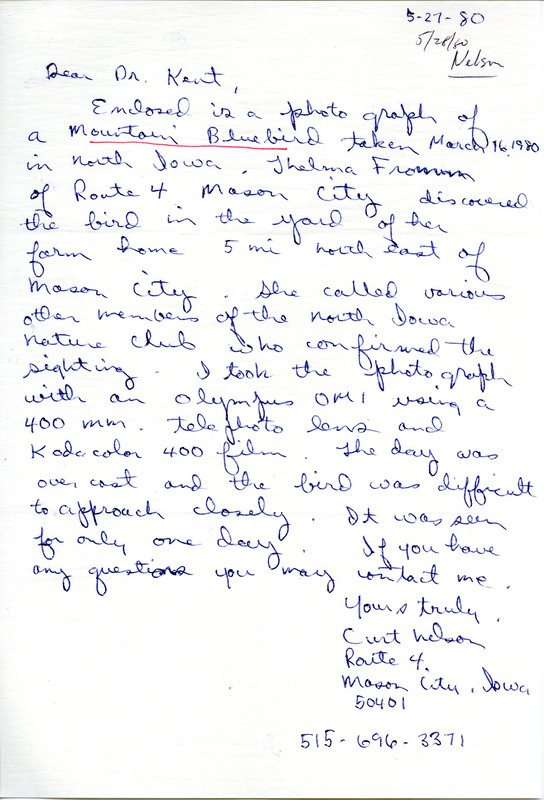 5-27-80
5/28/80
Nelson
Dear Dr. Kent,
Enclosed is a photo graph of
a Mountain Bluebird taken March 16, 1980
in north Iowa. Thelma Fromm
of Route 4 Mason City discovered
the bird in the yard of her
farm home 5 mi north east of
Mason City. She called various
other members of the north Iowa
nature club who confirmed the
sighting. I took the photograph
with an Olympus OM1 using a
400 mm. telephoto lens and
Kodacolor 400 film. The day was
over cast and the bird was difficult
to approach closely. It was seen
for only one day. If you have
any questions you may contact me.
Yours truly,
Curt Nelson
Route 4.
Mason City, Iowa
50401
515-696-3371